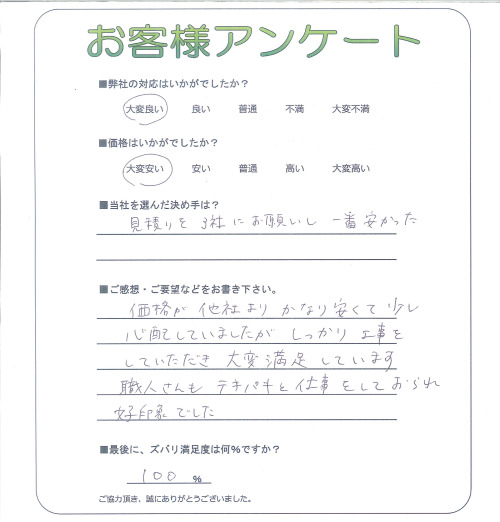 お客様アンケート
■弊社の対応はいかがでしたか？
大変良い 良い 普通 不満 大変不満
■価格はいかがでしたか？
大変安い 安い 普通 高い 大変高い
■当社を選んだ決め手は？
見積りを 3社にお願いし 一番安かった
■ご感想・ご要望などをお書き下さい。
価格が 他社より かなり安くて 少し
心配していましたが しっかり 工事を
していただき 大変満足しています
職人さんも テキパキと 仕事をしておられ
好印象でした
■最後に、ズバリ満足度は何％ですか？
100 ％
ご協力頂き、誠にありがとうございました。